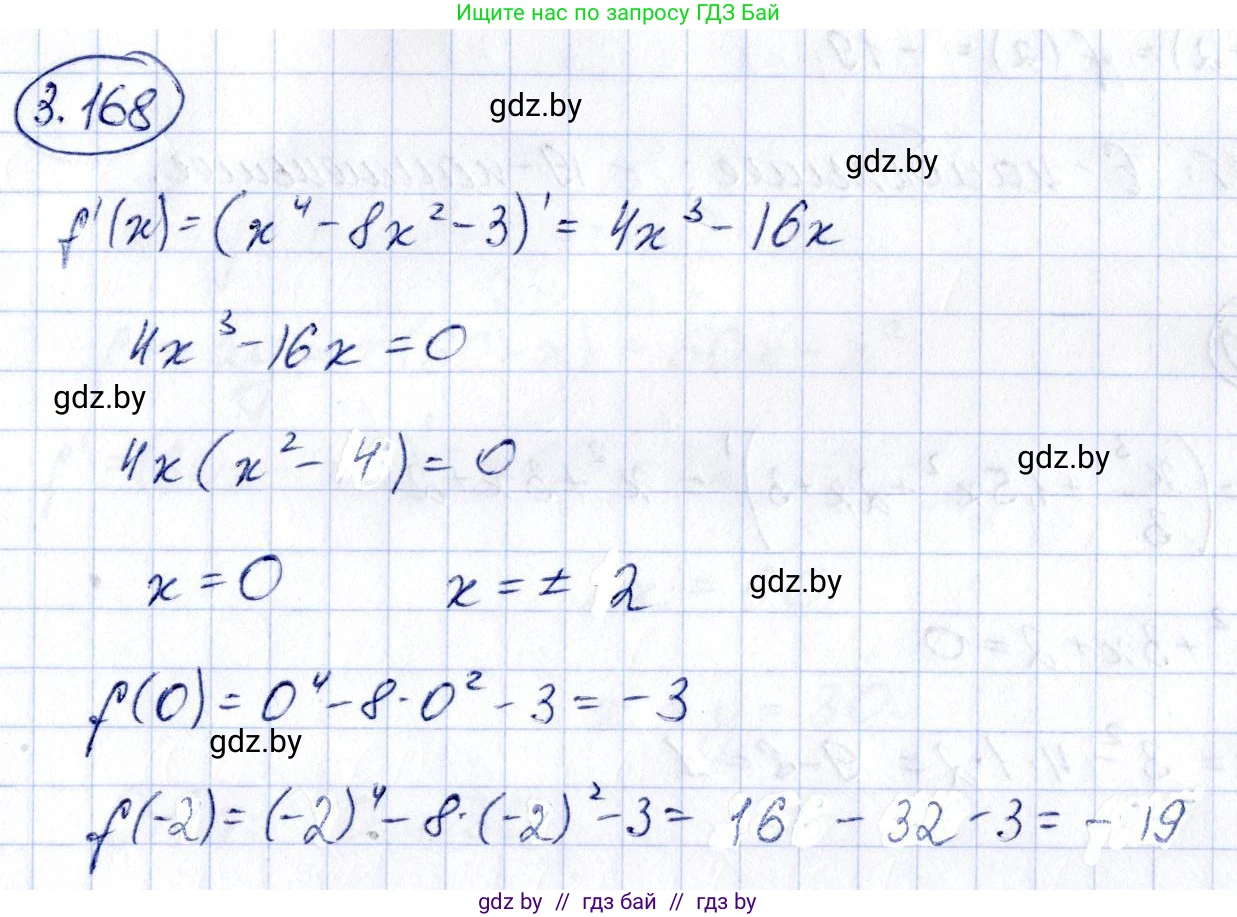 Ищите нас по запросу ГДЗ Бай
3.168
gdz.by
gdz.by
f'(x) = (x⁴ - 8x² - 3)' = 4x³ - 16x
4x³ - 16x = 0
gdz.by
4x(x² - 4) = 0
gdz.by
x = 0 x = ± 2
gdz.by
f(0) = 0⁴ - 8·0² - 3 = -3
gdz.by
f(-2) = (-2)⁴ - 8·(-2)² - 3 = 16 - 32 - 3 = -19
gdz by // гдз бай // gdz by